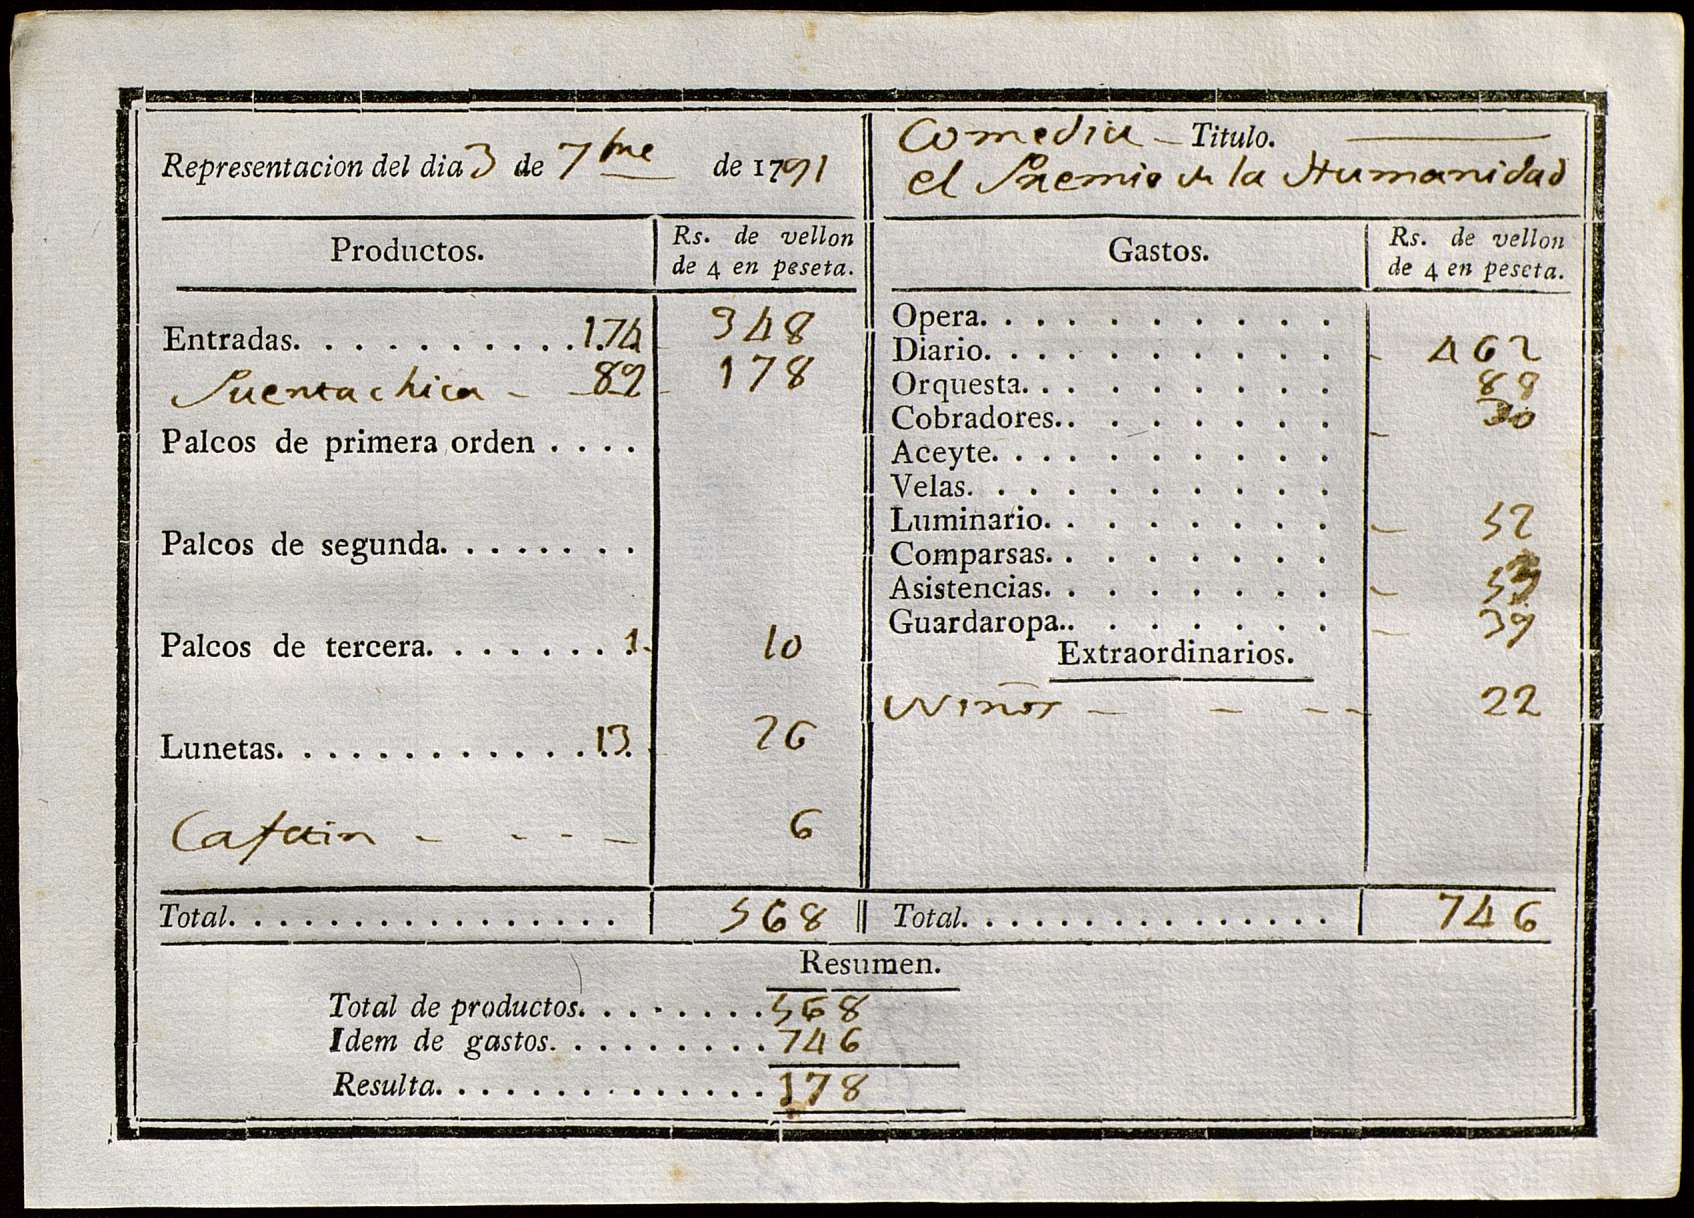 Representacion del dia 3 de 7bre de 1791
Comedia - Titulo.
el Premio de la Humanidad
Productos. Rs. de vellon de 4 en peseta.
Entradas. . . . . . . . . . . 174 348
Puertachica - 89 178
Palcos de primera orden . . . .
Palcos de segunda. . . . . . . .
Palcos de tercera. . . . . . . . 1. 10
Lunetas. . . . . . . . . . . . . 13. 26
6
Total. . . . . . . . . . . . . . . . 568
Gastos. Rs. de vellon de 4 en peseta.
Opera. . . . . . . . . .
Diario. . . . . . . . . . 462
Orquesta. . . . . . . . . 88
Cobradores.. . . . . . . 30
Aceyte. . . . . . . . . .
Velas. . . . . . . . . .
Luminario. . . . . . . . 52
Comparsas. . . . . . . .
Asistencias. . . . . . . . 53
Guardaropa.. . . . . . . 39
Extraordinarios.
Niños - - - - 22
Total. . . . . . . . . . . . . . . 746
Resumen.
Total de productos. . . . . . . . 568
Idem de gastos. . . . . . . . . 746
Resulta. . . . . . . . . . . . . . 178